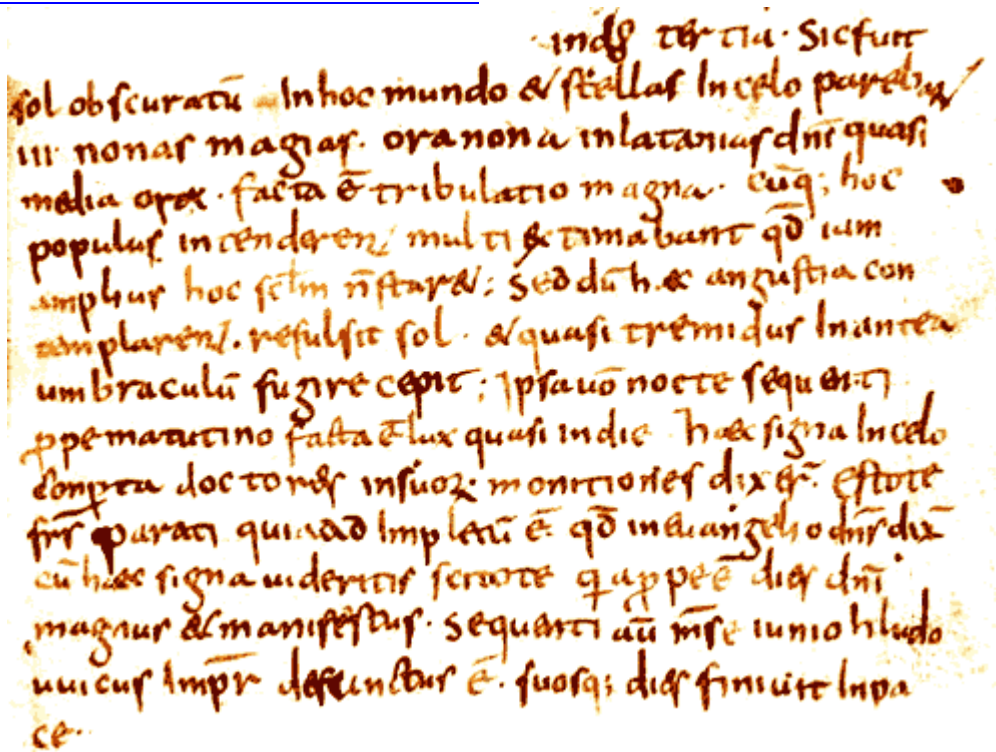 indɫ tertia. Sicfuit
sol obscuratū Inhoc mundo & stellas Incelo parebant
III nonas magias. oranona inlatanias dnī quasi
media ora. facta ē tribulatio magna. cūq; hoc
populus incenderen& multi &timabant qđ iam
amplius hoc sclm n̄ star&; Sed dū h&c angustia con
templaren&. refulsit sol. & quasi tremidus Inantea
umbraculū fugire cepit; Ipsa uō nocte sequenti
ꝓpe matutino facta ē lux quasi indie haec signa Incelo
doctores insuoꝝ monitiones dixer̄. Estote
frs̄ parati quia ad Impletū ē. qđ ineuangelio dnr̄ dix̄
cū haec signa uideritis scitote qi aꝓpe ē dies dnī
magnus & manifestus. Sequenti aū mse iunio hludo
uuicus Impr̄ defunctus ē. suosq; dies finiuit Inpa
ce.